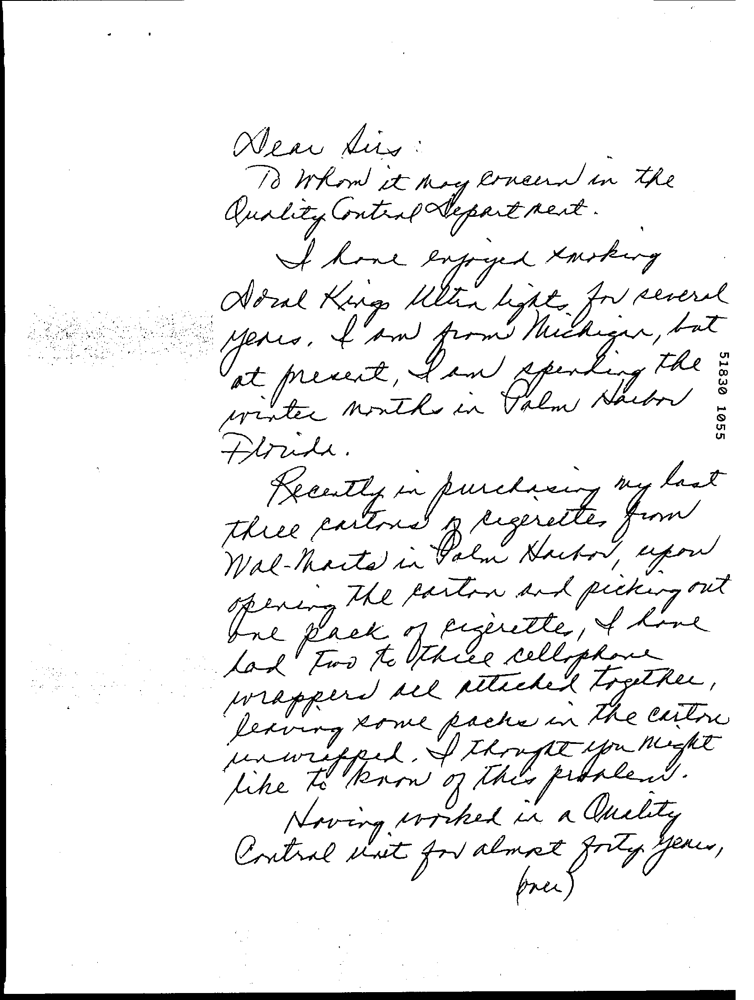 Dear Sirs:
To Whom it may concern in the
Quality Control Department.
I have enjoyed smoking
Doral Kings Ultra lights for several
years. I am from Michigan, but
at present, I am spending the
winter months in Palm Harbor
Florida.
Recently in purchasing my last
three cartons of cigerettes from
Wal-Marts in Palm Harbor, upon
opening the carton and picking out
one pack of cigerettes, I have
had two to three cellophane
wrappers all attached together,
leaving some packs in the carton
unwrapped. I thought you might
like to know of this problem.
Having worked in a Quality
Control unit for almost forty years,
(over)
51830 1055